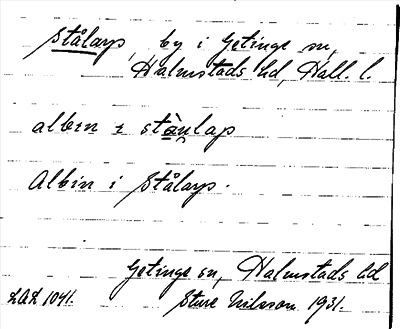 Stålarp, by i Getinge sn,
Halmstads hd, Hall. l.
albın ı stạ̀u̯lap
Albin i Stålarp.
Getinge sn, Halmstads hd
LAL 1041. Sture Nilsson 1931.